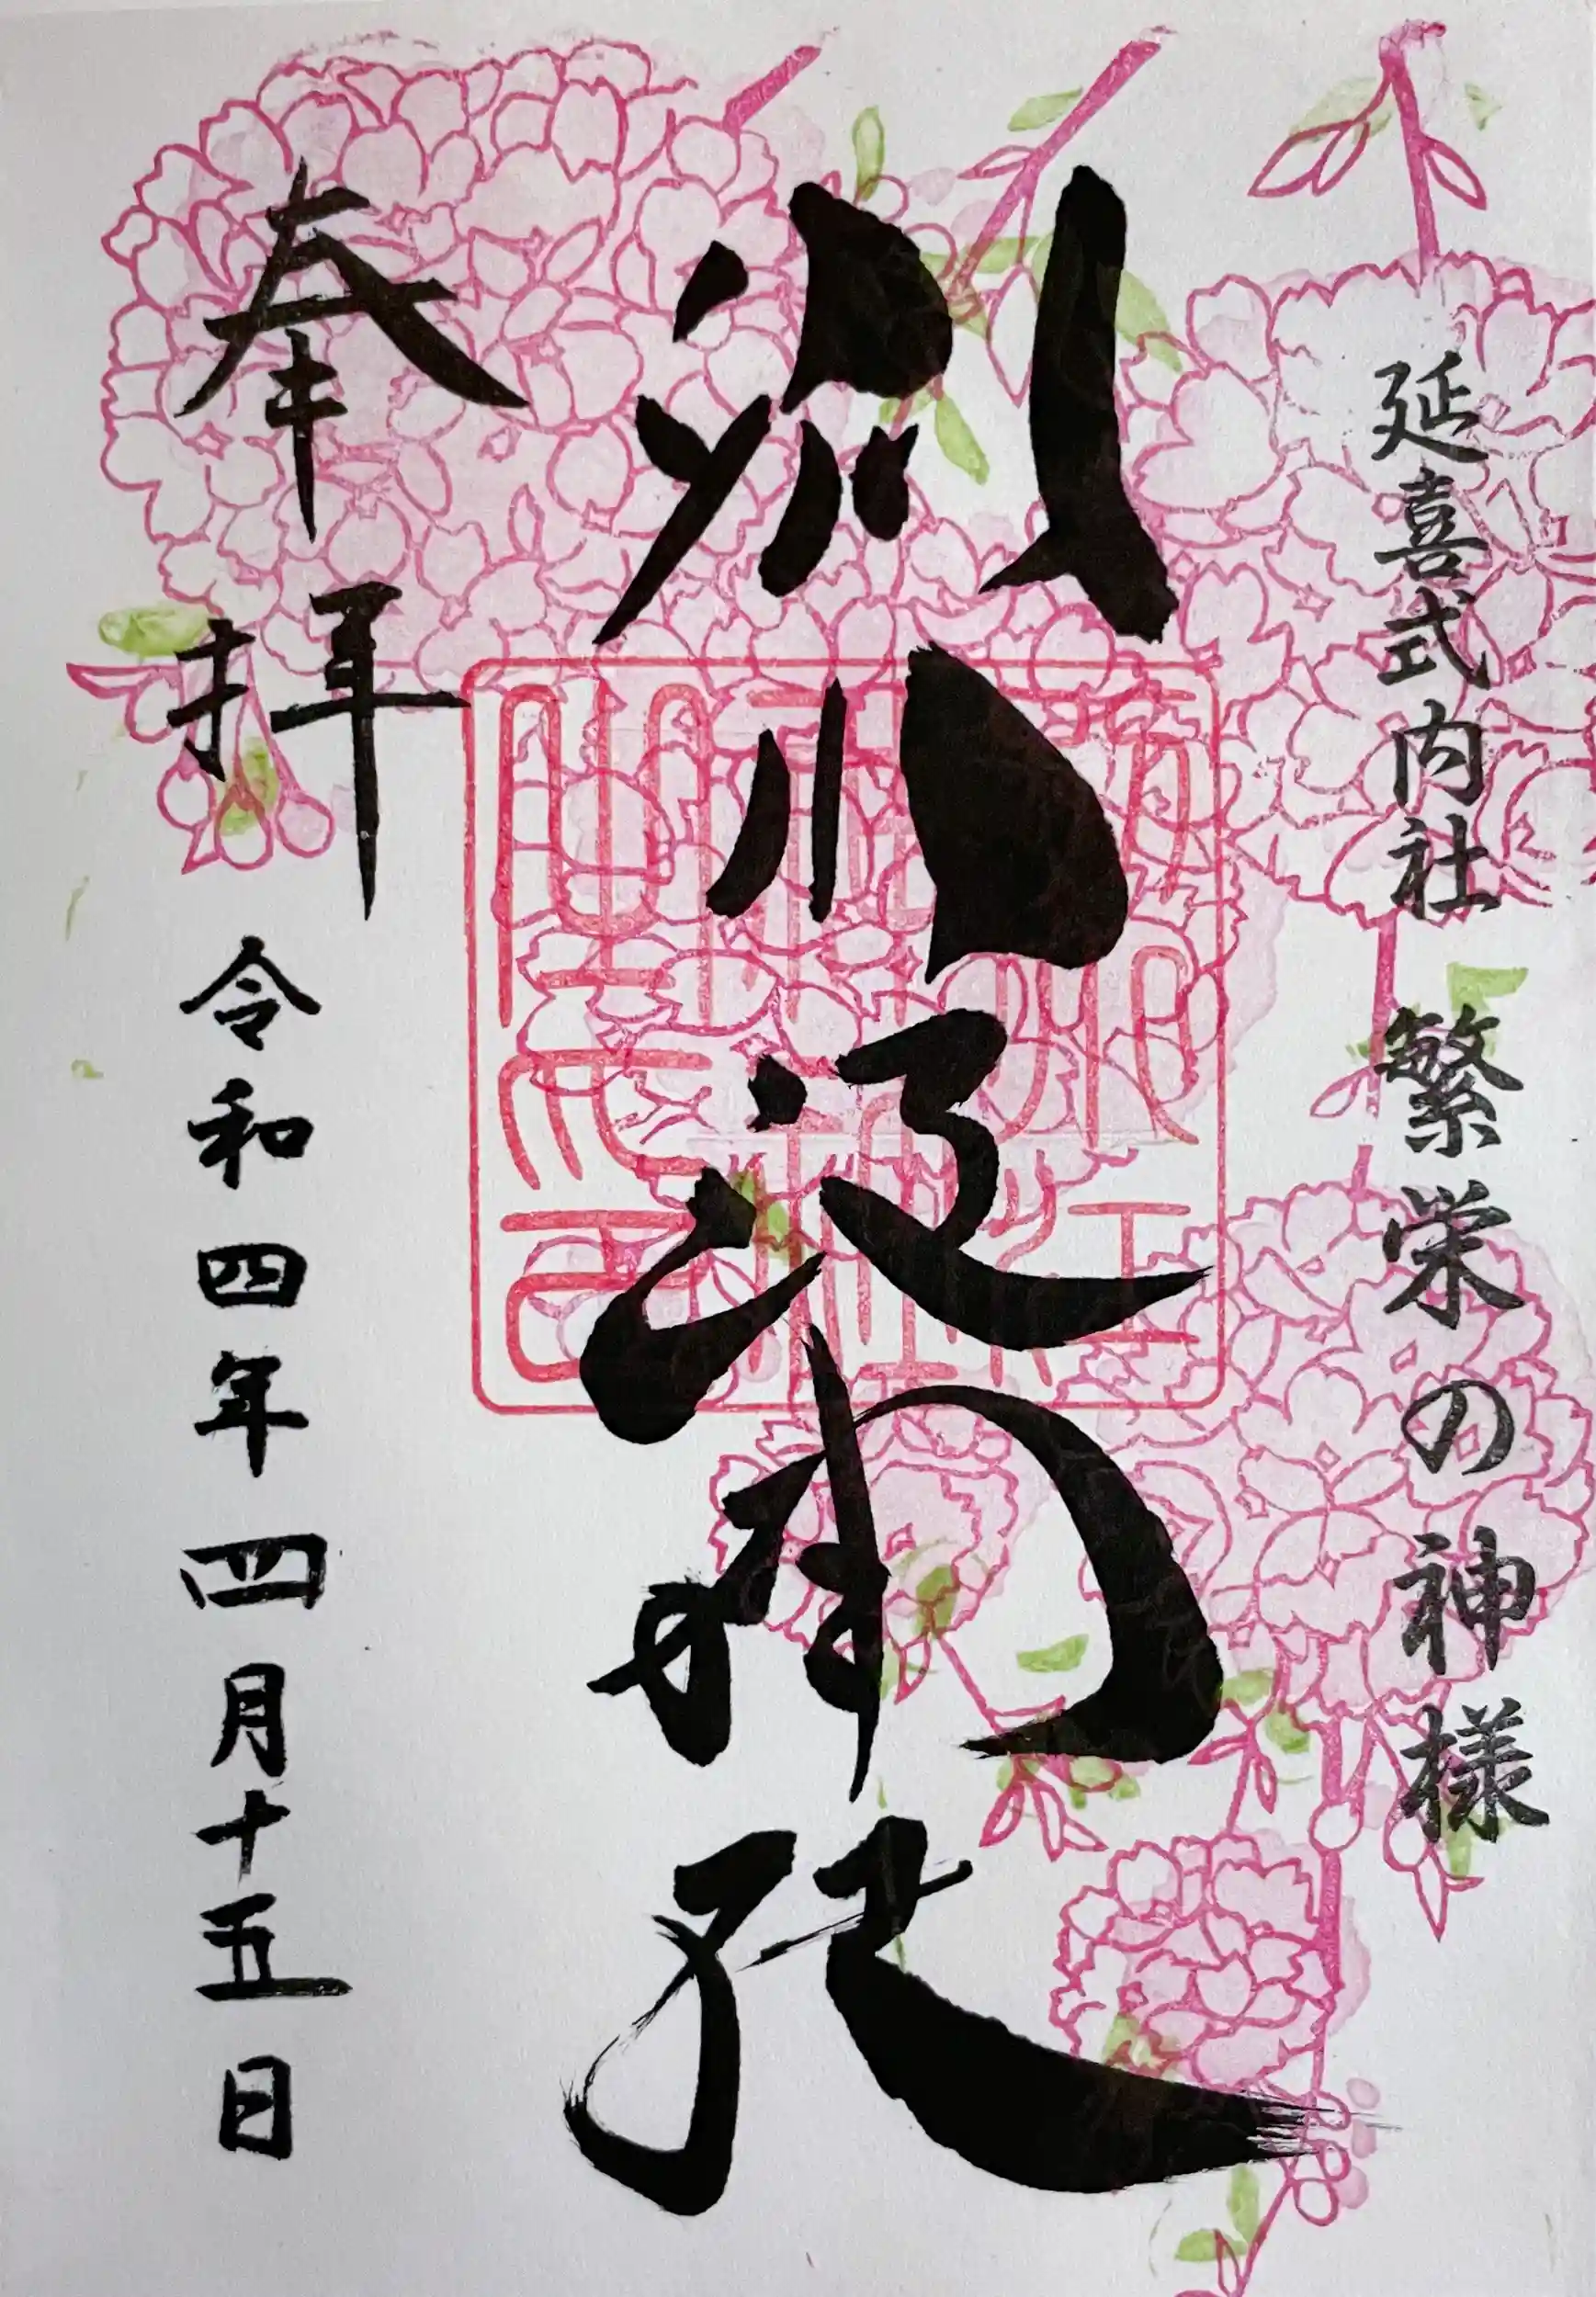 延喜式内社 繁栄の神様
別小江神社
奉拝 令和四年四月十五日